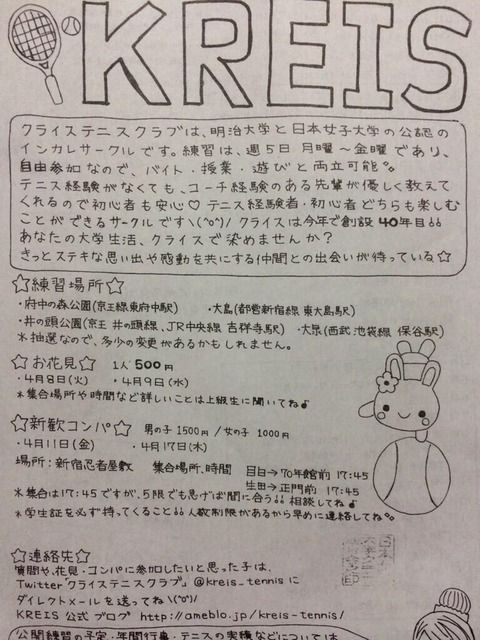 KREIS
クライステニスクラブは、明治大学と日本女子大学の公認の
インカレサークルです。練習は、週5日 月曜～金曜であり、
自由参加なので、バイト・授業・遊びと両立可能。
テニス経験がなくても、コーチ経験のある先輩が優しく教えて
くれるので初心者も安心♡ テニス経験者・初心者どちらも楽しむ
ことができるサークルです\(^o^)/ クライスは今年で創設40年目!!
あなたの大学生活、クライスで染めませんか？
きっとステキな思い出や感動を共にする仲間との出会いが待っている☆
☆練習場所☆
・府中の森公園(京王線東府中駅) ・大島(都営新宿線 東大島駅)
・井の頭公園(京王 井の頭線、JR中央線 吉祥寺駅) ・大泉(西武池袋線 保谷駅)
＊抽選なので、多少の変更があるかもしれません。
☆お花見☆ 1人500円
・4月8日(火) ・4月9日(水)
＊集合場所や時間など詳しいことは上級生に聞いてね♪
☆新歓コンパ☆ 男の子1500円/女の子1000円
・4月11日(金) ・4月17日(木)
場所：新宿忍者屋敷 集合場所、時間 目白→70年館前 17:45
生田→正門前 17:45
＊集合は17:45ですが、5限でも急げば間に合う!! 相談してね♪
＊学生証を必ず持ってくること!! 人数制限があるから早めに連絡してね。
☆連絡先☆
質問や、花見・コンパに参加したいと思った子は、
Twitter「クライステニスクラブ」@kreis_tennisに
ダイレクトメールを送ってね\(^o^)/
KREIS 公式ブログ http://ameblo.jp/kreis-tennis/
公開練習の予定・年間行事・テニスの実績などについては